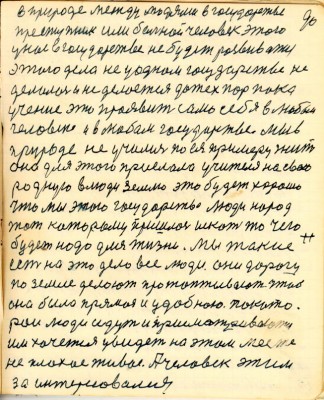 90
в природе между людями в государстве
преступник или больной человек этого
умов государстве не будет развивату
этого дела не уодном государстве не
делолся и не делоется до тех пор пока
учение это проявит само себя в любом
человеке и в любом государстве. Мы в
природе не училися после примеру жить
она для этого прислала учителя на свою
родную в люди землю это будет хорошо
что мы этого государство люди народ
тот которому пришлося искать то чего
будет надо для жизни. Мы такие
есть на это дело все люди. они дорогу
по земле делают протоптывают чтоб
она была прямая и удобною. по кото-
рой люди идут и присматриваются
им хочется увидеть на этом месте
не плохое живое. А человек этим
заинтересовался